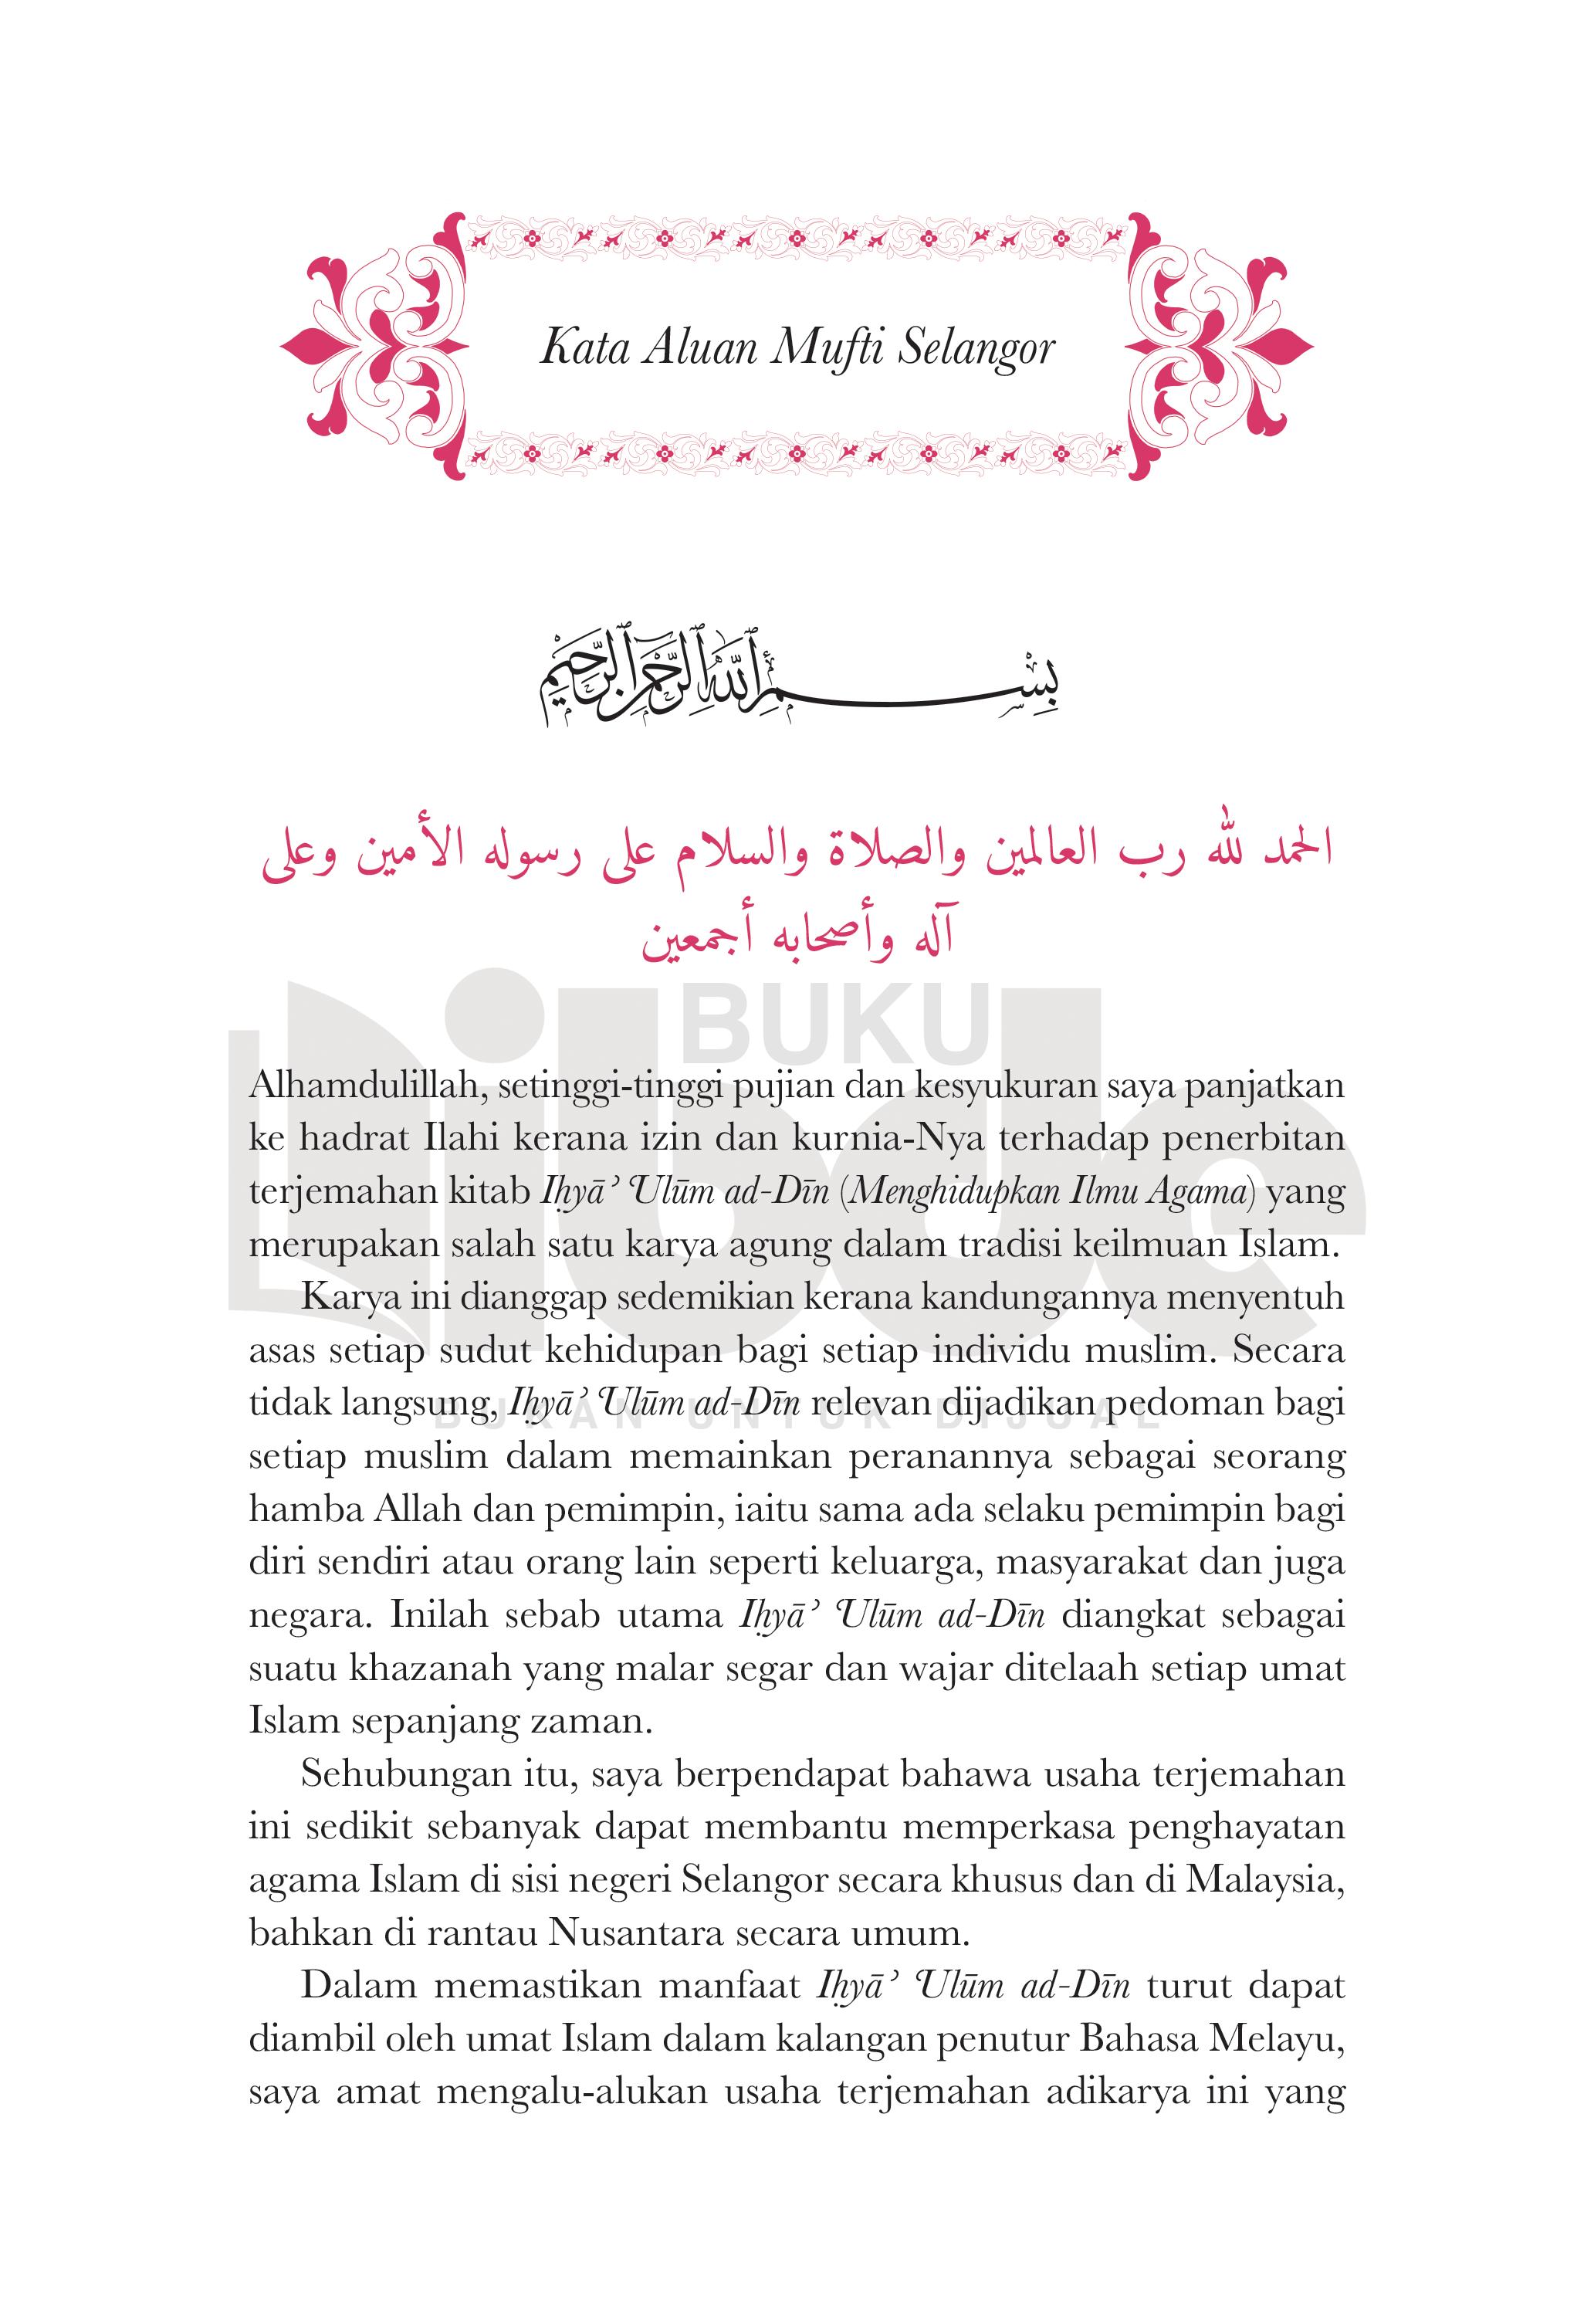 Kata Aluan Mufti Selangor
بِسْمِ ٱللَّهِ ٱلرَّحْمَٰنِ ٱلرَّحِيمِ
الحمد لله رب العالمين والصلاة والسلام على رسوله الأمين وعلى
آله وأصحابه أجمعين
BUKU
ibde
Alhamdulillah, setinggi-tinggi pujian dan kesyukuran saya panjatkan
ke hadrat Ilahi kerana izin dan kurnia-Nya terhadap penerbitan
terjemahan kitab Iḥyā’ ‘Ulūm ad-Dīn (Menghidupkan Ilmu Agama) yang
merupakan salah satu karya agung dalam tradisi keilmuan Islam.
Karya ini dianggap sedemikian kerana kandungannya menyentuh
asas setiap sudut kehidupan bagi setiap individu muslim. Secara
tidak langsung, Iḥyā’ ‘Ulūm ad-Dīn relevan dijadikan pedoman bagi
BUKAN UNTUK DIJUAL
setiap muslim dalam memainkan peranannya sebagai seorang
hamba Allah dan pemimpin, iaitu sama ada selaku pemimpin bagi
diri sendiri atau orang lain seperti keluarga, masyarakat dan juga
negara. Inilah sebab utama Iḥyā’ ‘Ulūm ad-Dīn diangkat sebagai
suatu khazanah yang malar segar dan wajar ditelaah setiap umat
Islam sepanjang zaman.
Sehubungan itu, saya berpendapat bahawa usaha terjemahan
ini sedikit sebanyak dapat membantu memperkasa penghayatan
agama Islam di sisi negeri Selangor secara khusus dan di Malaysia,
bahkan di rantau Nusantara secara umum.
Dalam memastikan manfaat Iḥyā’ ‘Ulūm ad-Dīn turut dapat
diambil oleh umat Islam dalam kalangan penutur Bahasa Melayu,
saya amat mengalu-alukan usaha terjemahan adikarya ini yang